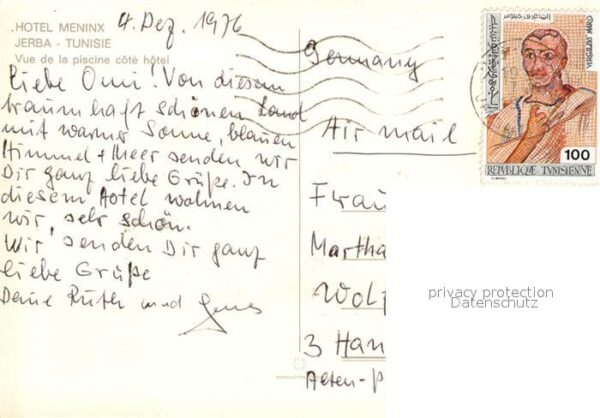 HOTEL MENINX
JERBA - TUNISIE
Vue de la piscine côté hôtel
4. Dez. 1976
Liebe Omi! Von diesem
traumhaft schönen Land
mit warmer Sonne, blauen
Himmel + Meer senden wir
Dir ganz liebe Grüße. In
diesem Hotel wohnen
wir, sehr schön.
Wir senden Dir ganz
liebe Grüße
Deine Ruth und
Germany
Air mail
Frau
Martha
Wolf
3 Han
Alten-
100
REPUBLIQUE TUNISIENNE
privacy protection
Datenschutz